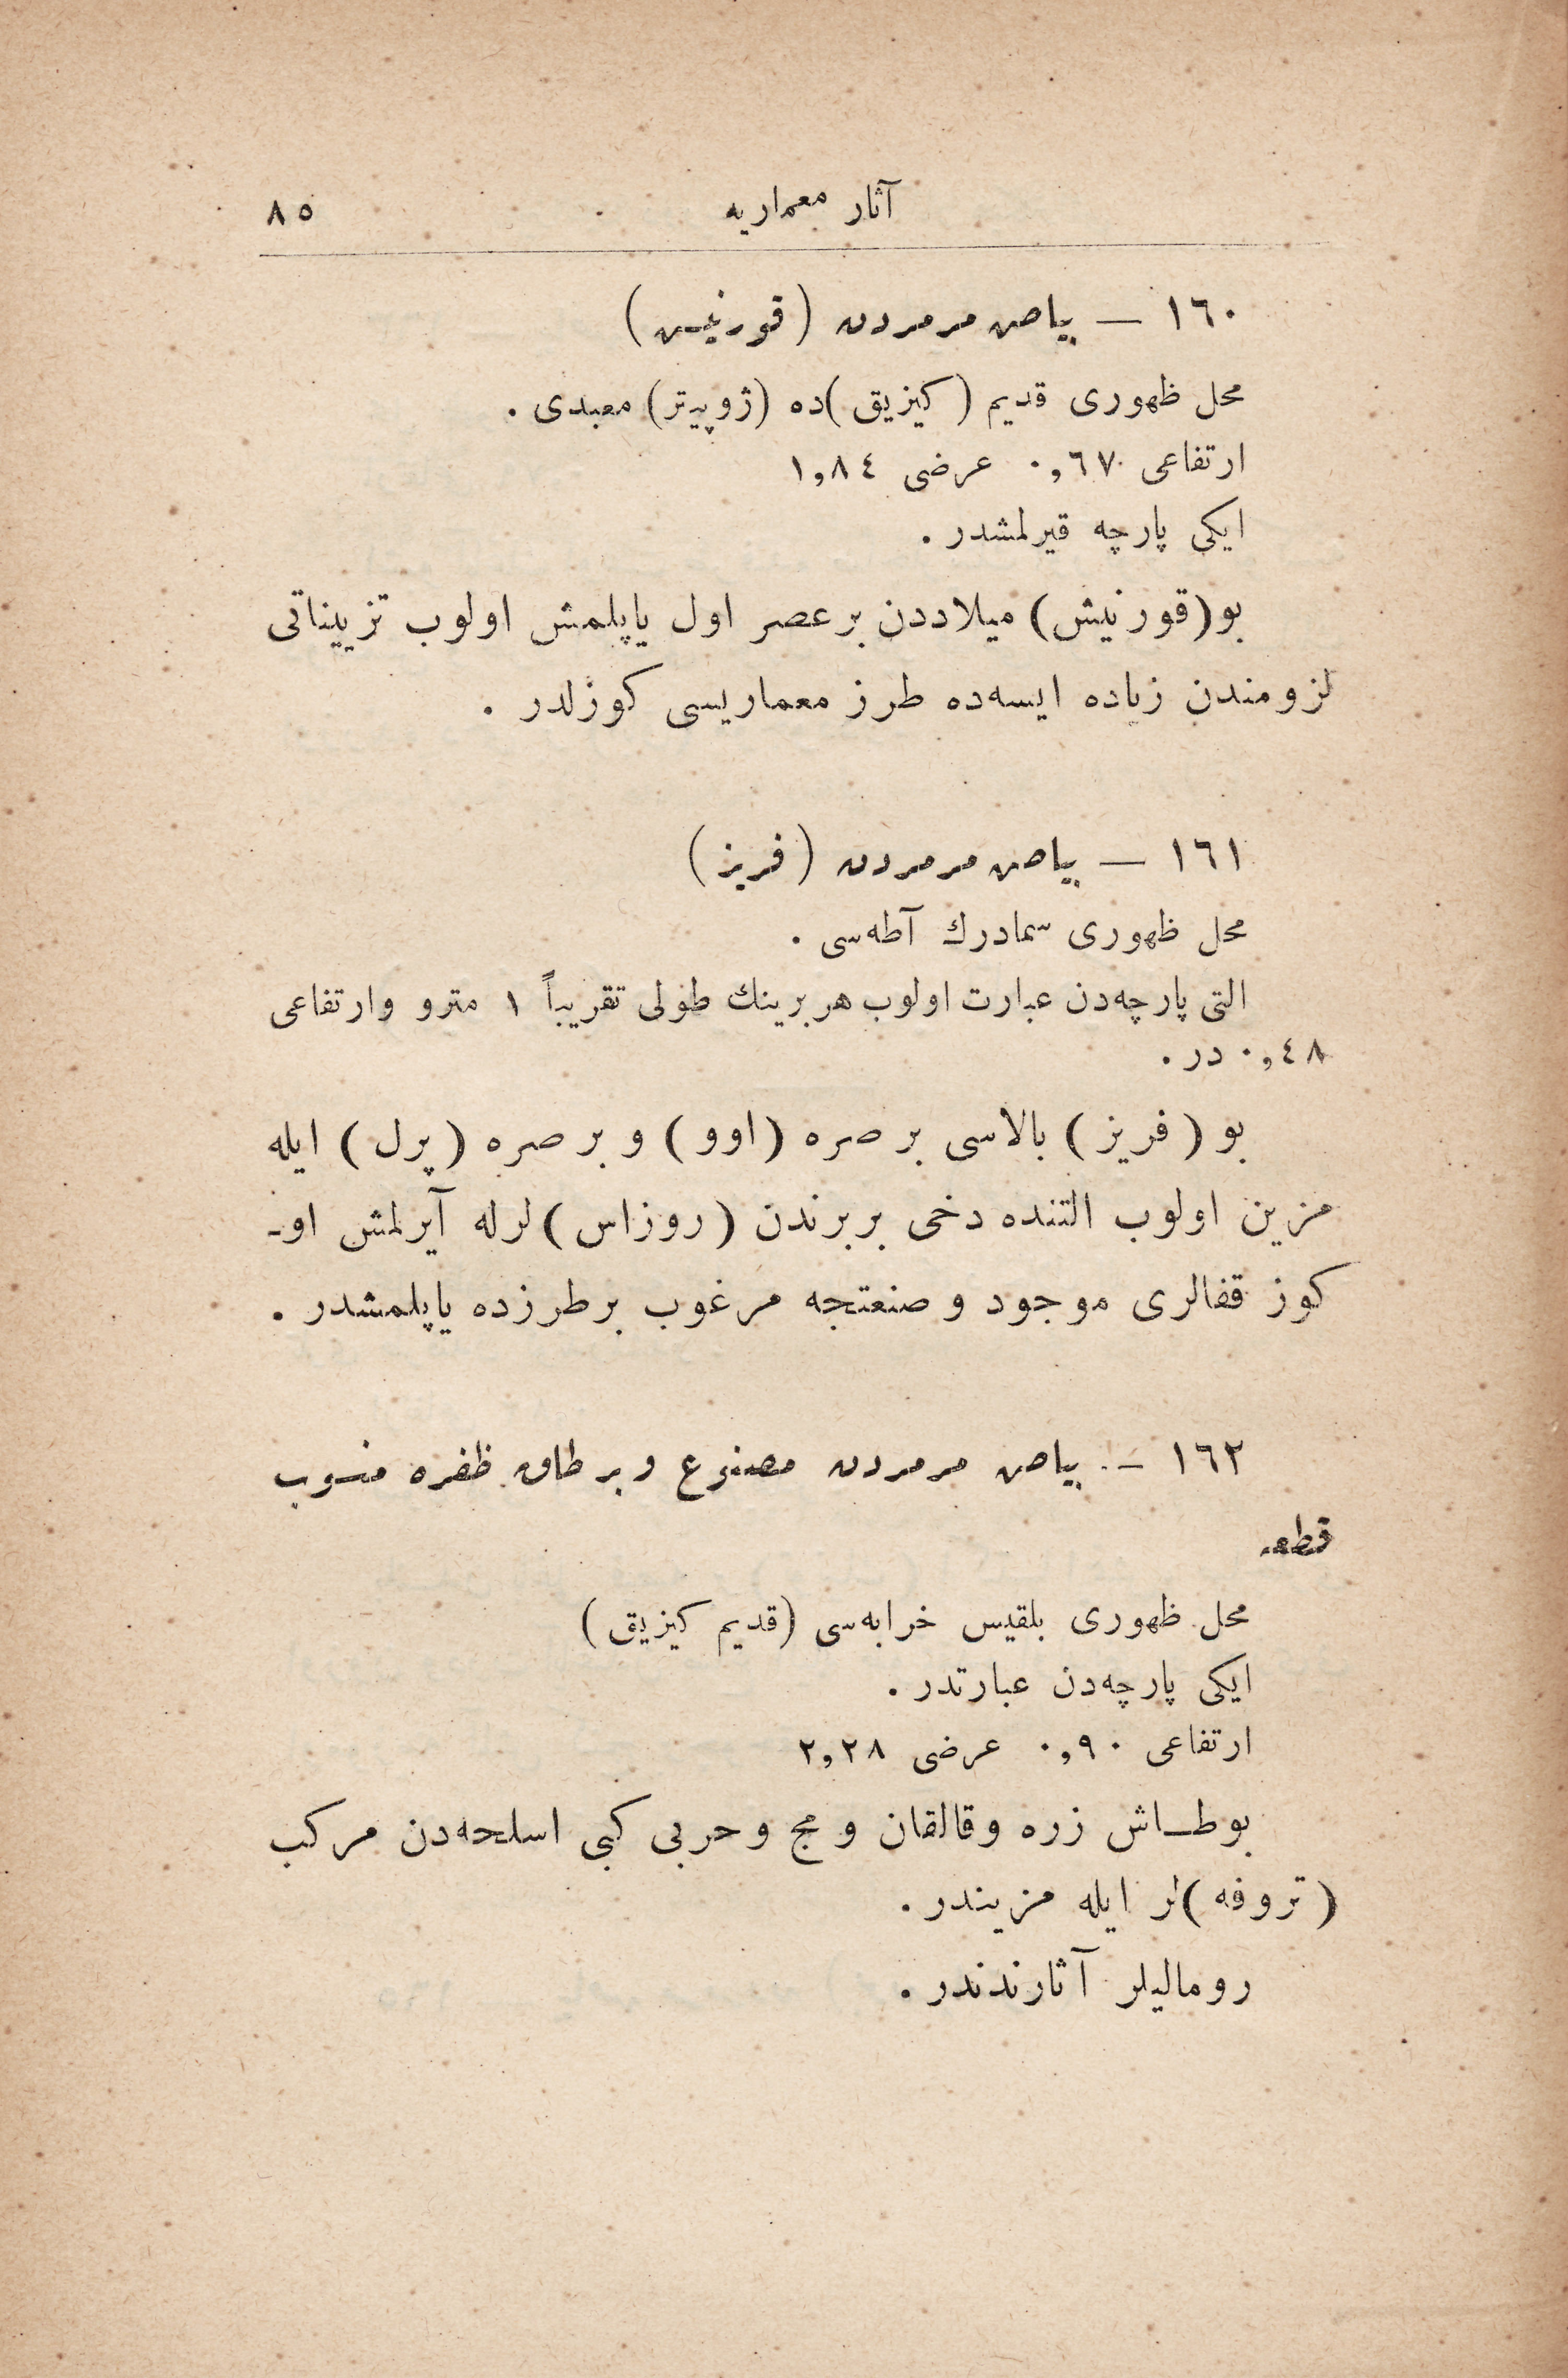 آثار معماریه ٨٥
١٦٠ — بیاض مرمردن (قورنیش)
محل ظهوری قدیم (کیزیق)ده (ژوپیتر) معبدی .
ارتفاعی ٠,٦٧ عرضی ١,٨٤
ایکی پارچه قیرلمشدر .
بو(قورنیش) میلاددن بر عصر اول یاپلمش اولوب تزییناتی
لزومندن زیاده ایسه‌ده طرز معماریسی کوزلدر .
١٦١ — بیاض مرمردن (فریز)
محل ظهوری سمادرك آطه‌سی .
التی پارچه‌دن عبارت اولوب هر برینك طولی تقریباً ١ مترو وارتفاعی
٠,٤٨ در .
بو (فریز) بالاسی بر صره (اوو) و بر صره (پرل) ایله
مزین اولوب التنده دخی بربرندن (روزاس)لرله آیرلمش او-
کوز قفالری موجود و صنعتجه مرغوب بر طرزده یاپلمشدر .
١٦٢ — بیاض مرمردن مصنوع و بر طاق ظفره منسوب
قطعه
محل ظهوری بلقیس خرابه‌سی (قدیم کیزیق)
ایکی پارچه‌دن عبارتدر .
ارتفاعی ٠,٩٠ عرضی ٢,٢٨
بوطـاش زره وقالقان و مج و حربی کبی اسلحه‌دن مرکب
(تروفه)لر ایله مزیندر .
رومالیلر آثارندندر .